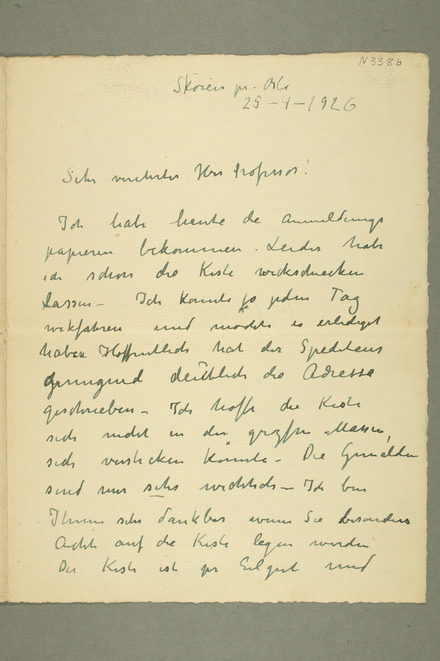 N 3386
Skøien pr. Oslo
25-4-1926
Sehr verehrter Herr Professor!
Ich habe heute de Anmeldungs
papieren bekommen. Leider habe
ich schon die Kiste
lassen – Ich konnte ja jeden Tag
wekfahren und möchte es erledigt
haben Hoffentlich hat der Spediteus
genugend deütlich die Adressa
geschrieben – Ich hoffe die Kiste
sich nicht in der grossen Massen,
sich verstecken konnte – Die Gemälden
sind mir sehr wichtich – Ich bin
Ihnen sehr dankbar wenn Sie besonders
Acht auf die Kiste legen werden
Die Kiste ist pr Eilgut und